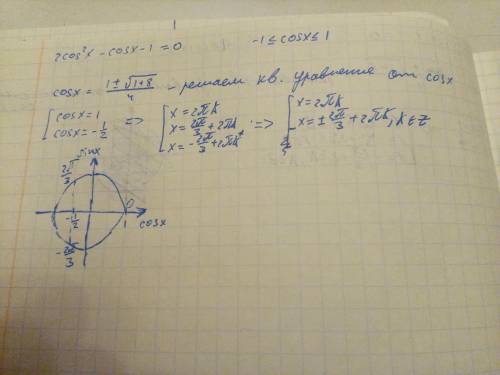 2cos²x - cosx - 1 = 0    -1 ≤ cosx ≤ 1
cosx = (1 ± √(1+8))/4 - решаем кв. уравнение от cosx
[cosx = 1 => [x = 2πk => [x = 2πk
cosx = -1/2    x = 2π/3 + 2πk    x = ± 2π/3 + 2πk, k∈Z
x = -2π/3 + 2πk
sinx
2π/3
-1/2    0
1    cosx
-2π/3